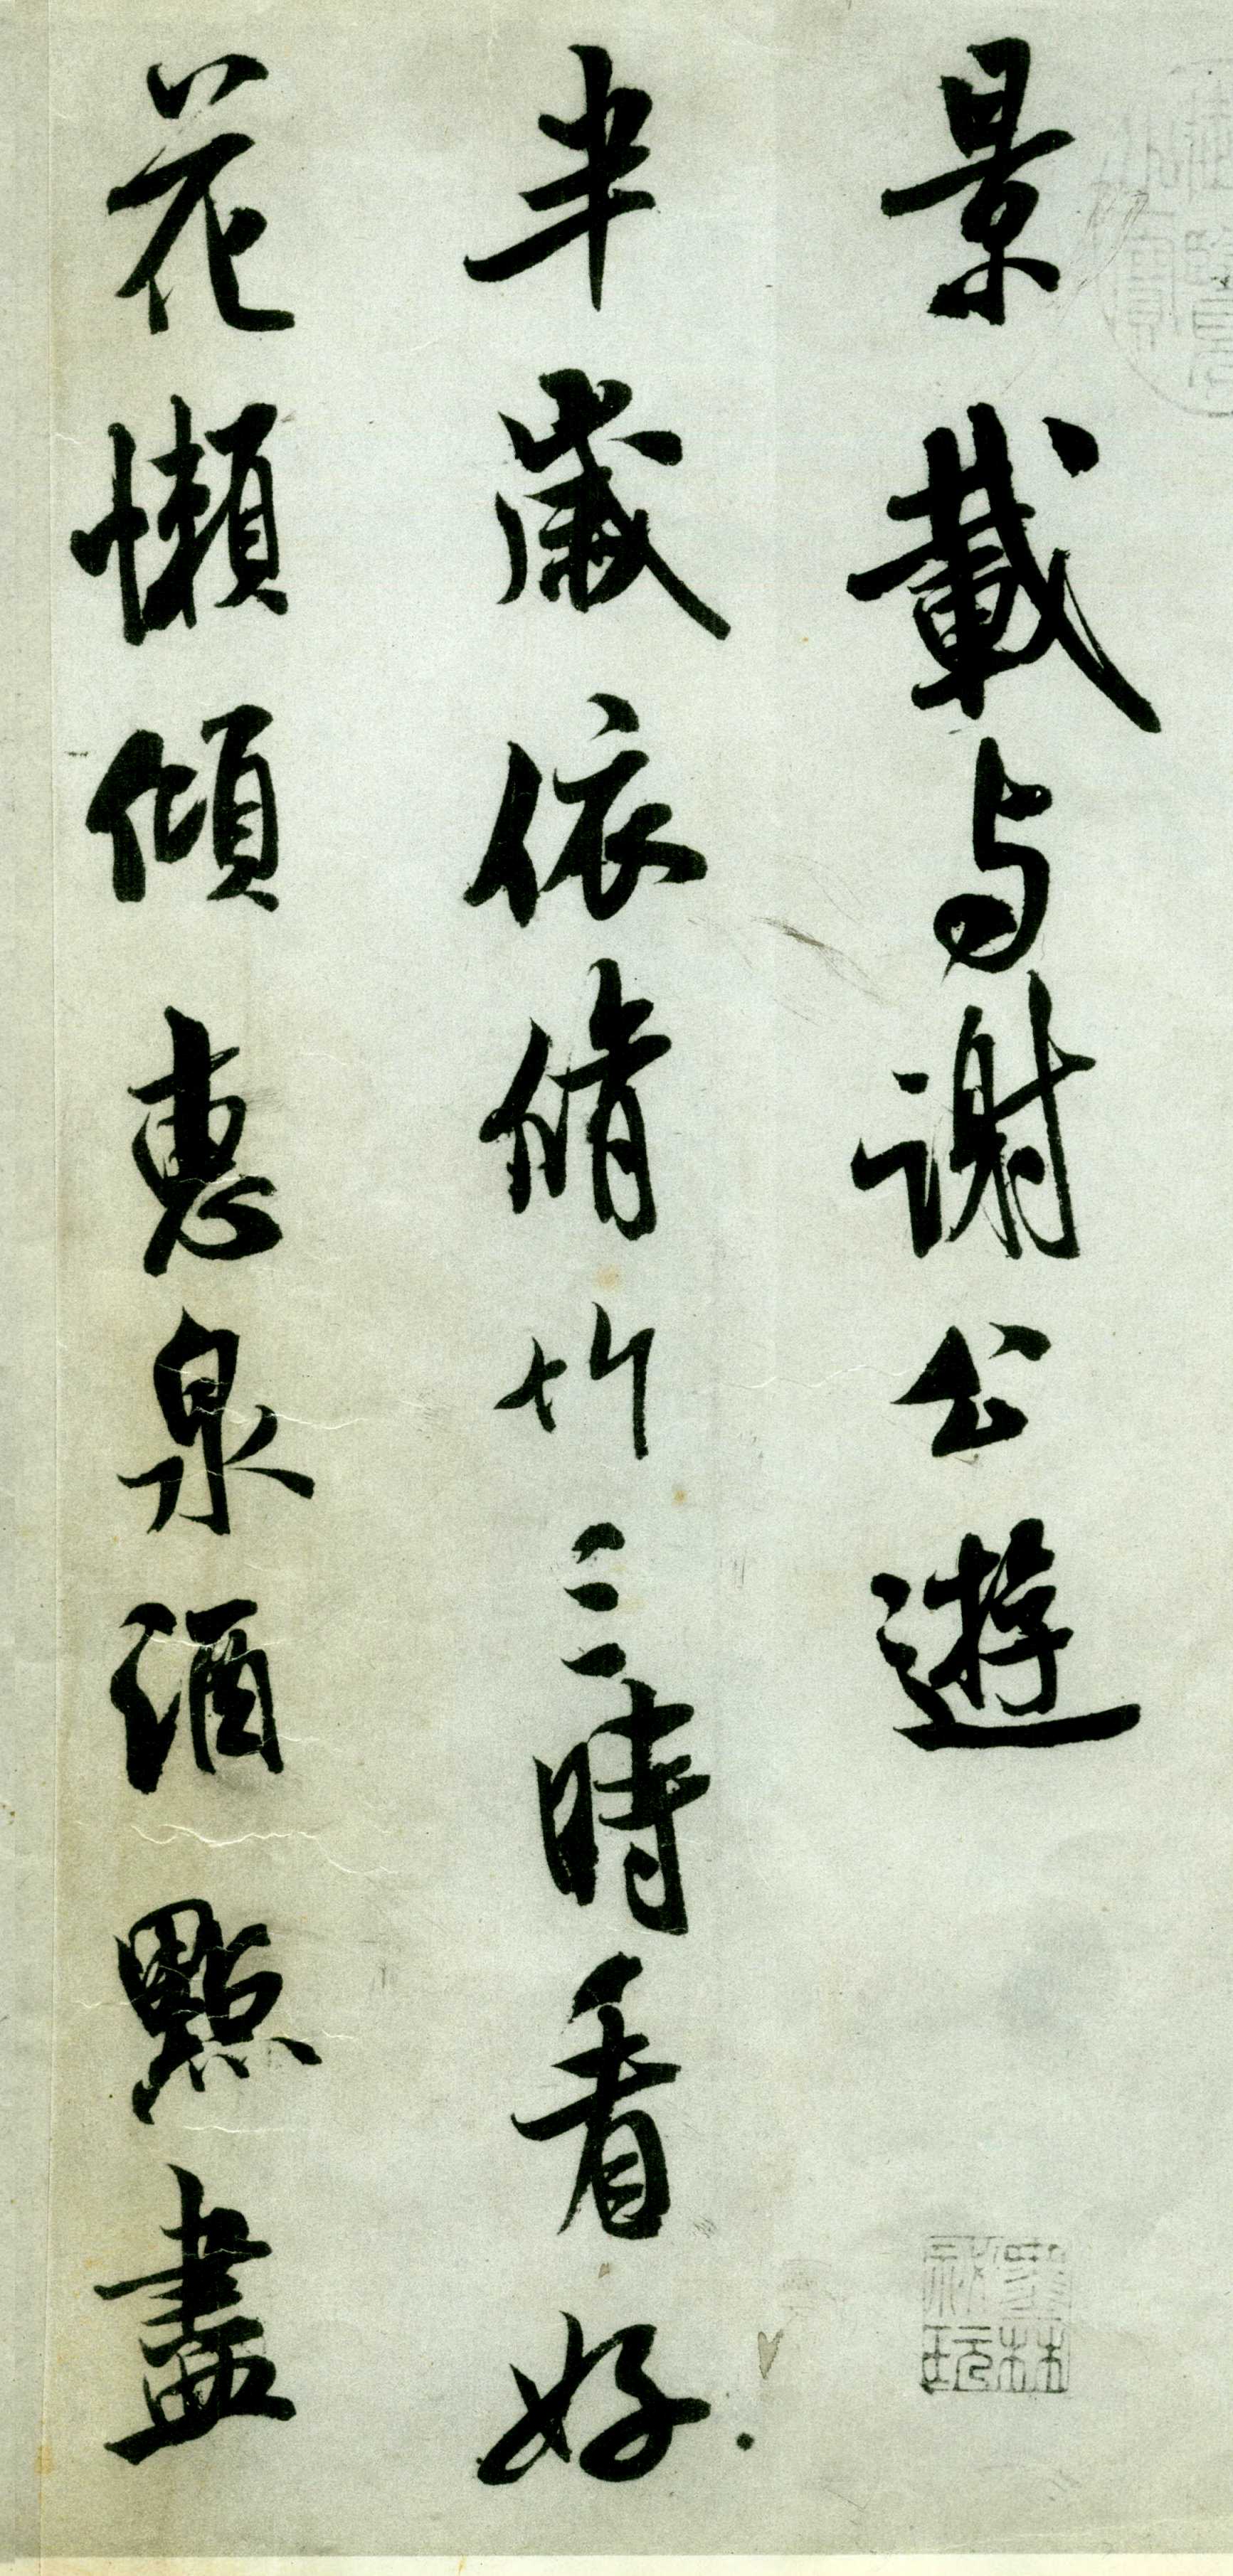 景載与謝公遊
半歲依脩竹三時看好
花懶傾惠泉酒點盡